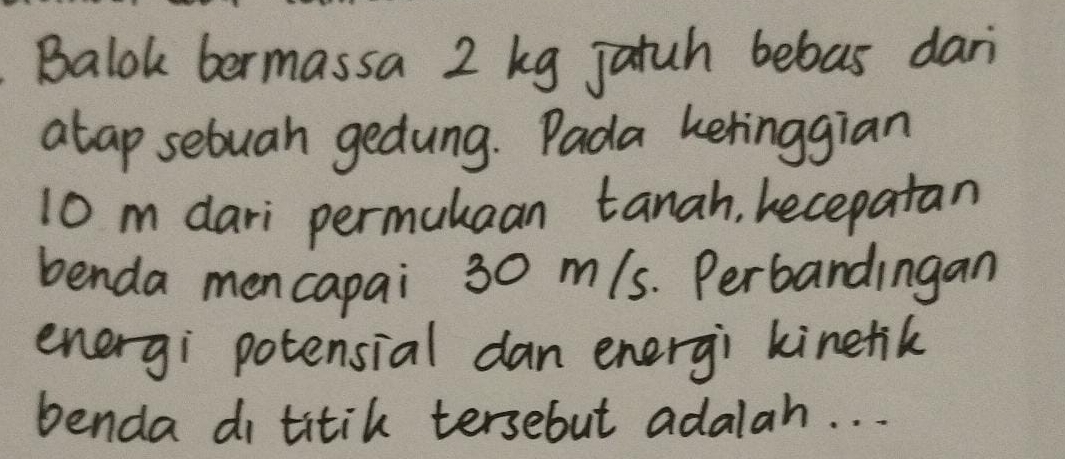 Balok bermassa 2 kg jatuh bebas dari
atap sebuah gedung. Pada ketinggian
10 m dari permukaan tanah, kecepatan
benda mencapai 30 m/s. Perbandingan
energi potensial dan energi kinetik
benda di titik tersebut adalah...